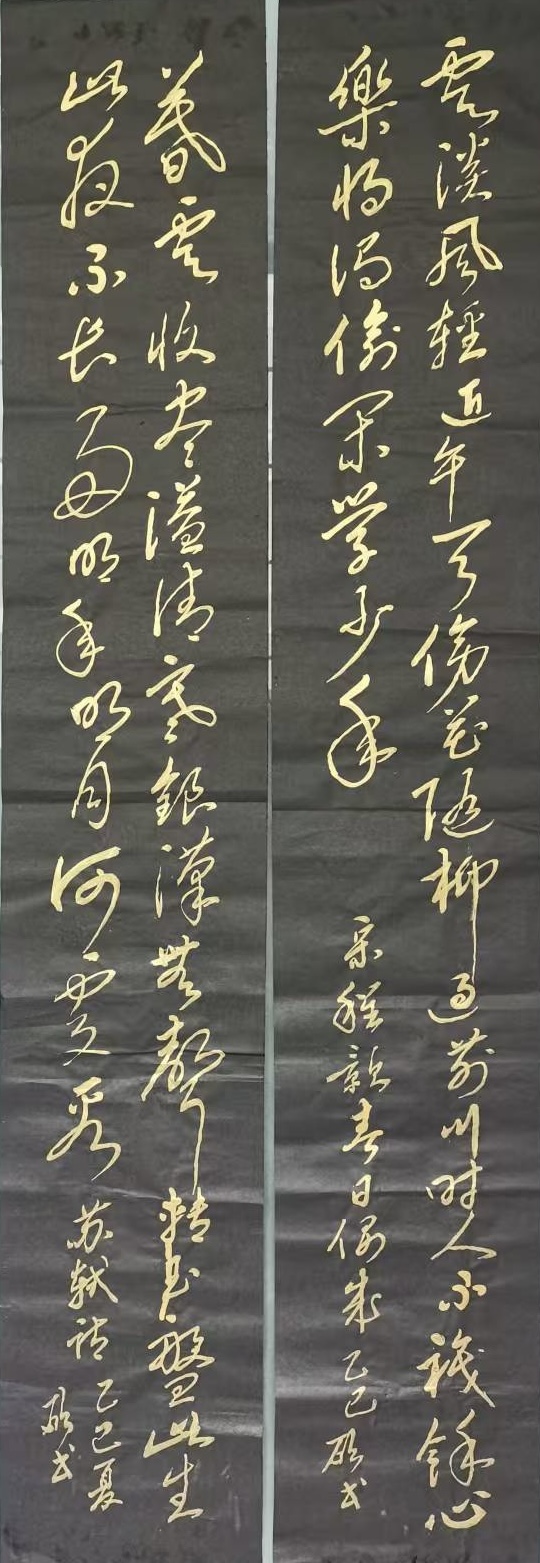 雲淡風輕近午天傍花随柳過前川時人不識餘心
樂將谓偷閑學少年
宋程颢春日偶成 乙巳 书
暮雲收盡溢清寒銀漢無聲轉玉盤此生
此夜不長好明年明月何處看
苏轼詩 乙巳夏
书